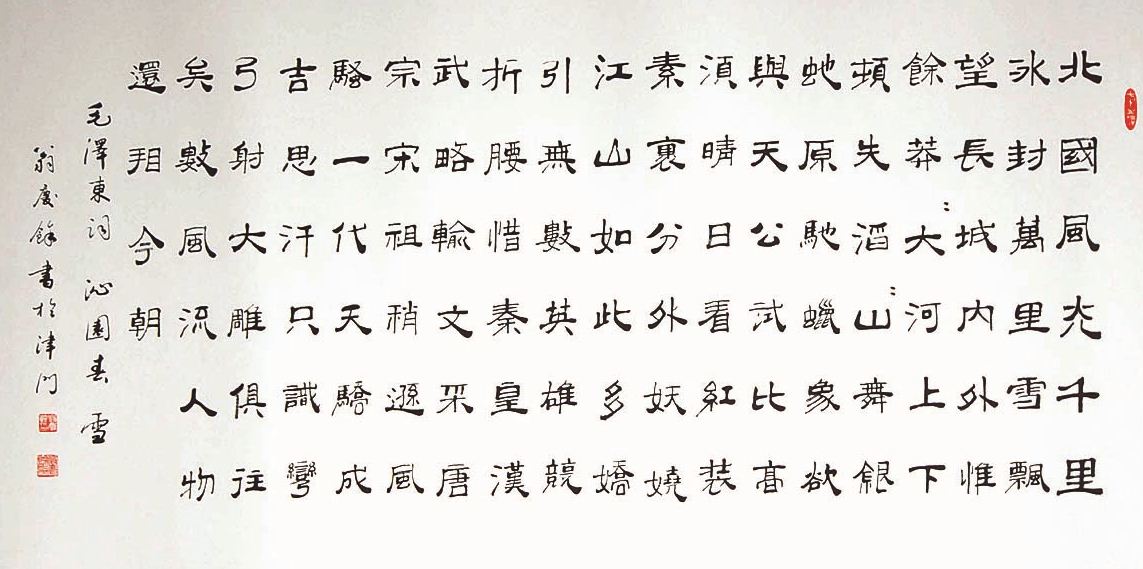 北國風光千里
冰封萬里雪飄
望長城内外惟
餘莽〻大河上下
頓失滔〻山舞銀
蛇原馳蠟象欲
與天公試比高
須晴日看紅装
素裹分外妖嬈
江山如此多嬌
引無數英雄競
折腰惜秦皇漢
武略輸文采唐
宗宋祖稍遜風
騷一代天驕成
吉思汗只識彎
弓射大雕俱往
矣數風流人物
還看今朝
毛澤東詞 沁園春 雪
翁慶餘書於津門